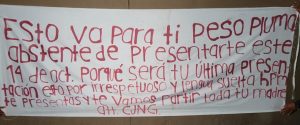 Esto va Para ti Peso Pluma
abstente de Presentarte este
14 de oct. Porqué será tu última Presen-
tación esto por irrespetuoso y lengua suelta hPM
te presentas y te vamos Partir toda tu madre
att. CJNG.